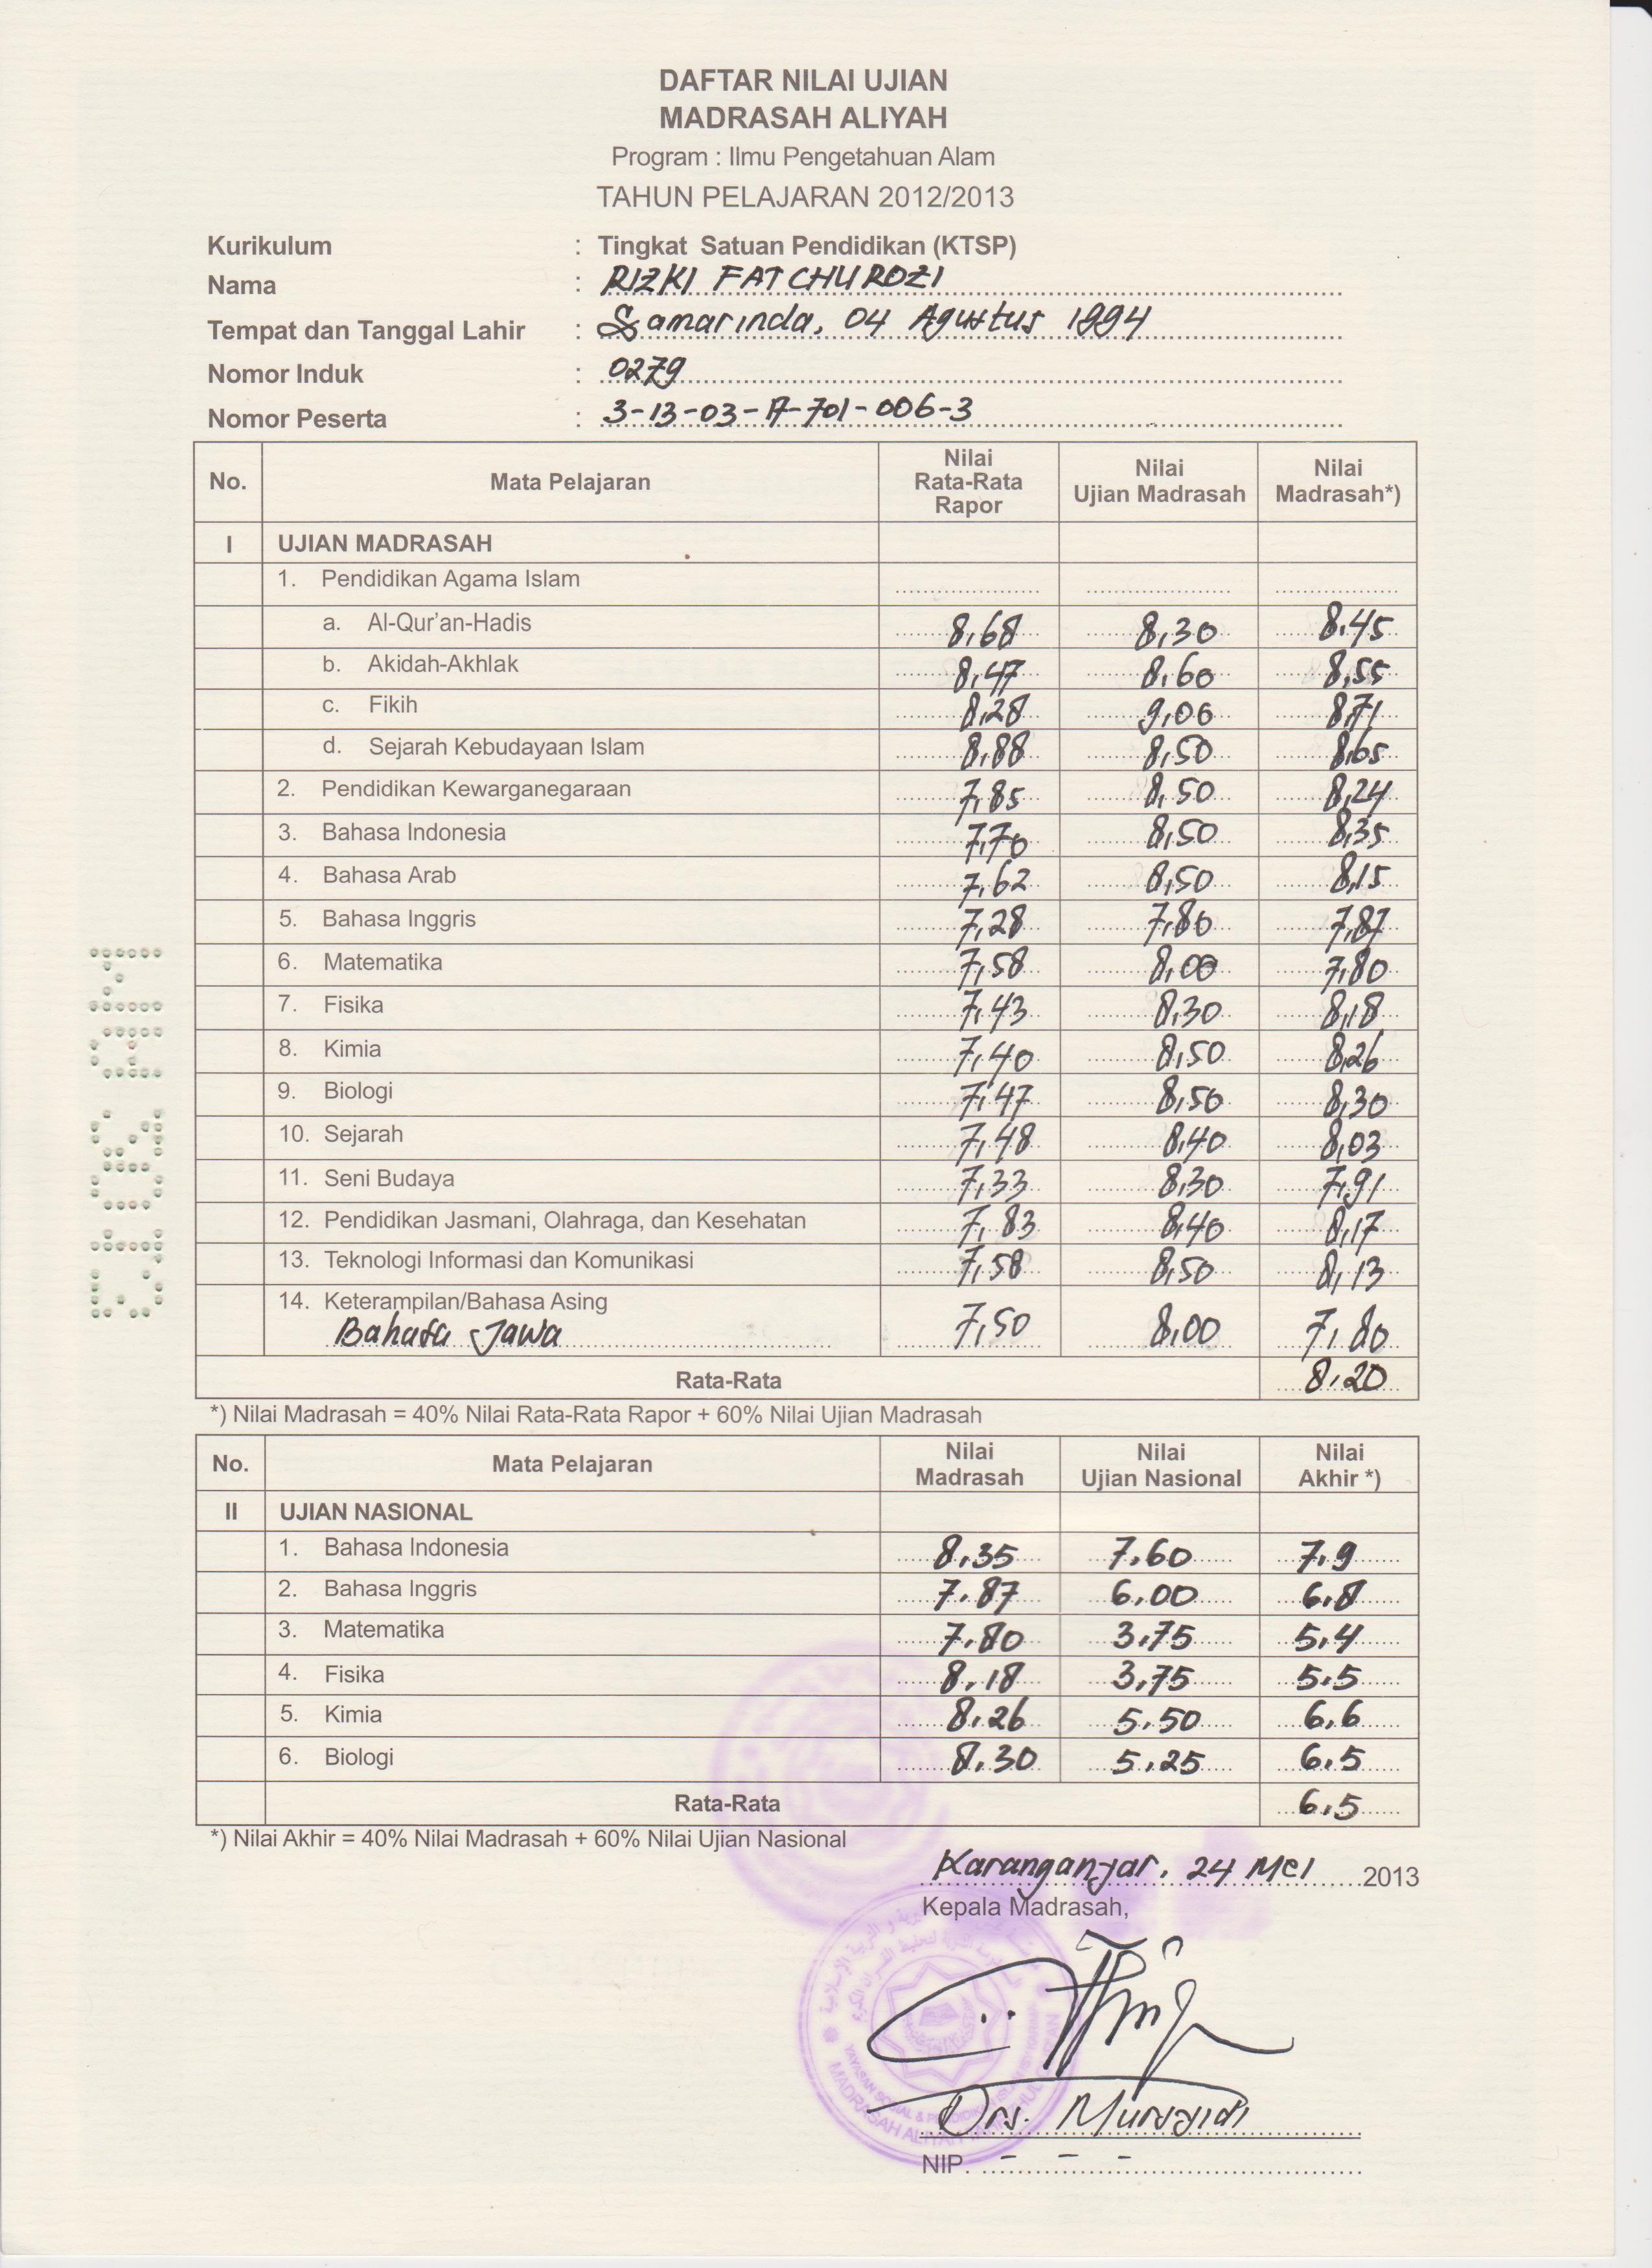 DAFTAR NILAI UJIAN
MADRASAH ALIYAH
Program : Ilmu Pengetahuan Alam
TAHUN PELAJARAN 2012/2013
Kurikulum : Tingkat Satuan Pendidikan (KTSP)
Nama : RIZKI FATCHUROZI
Tempat dan Tanggal Lahir : Samarinda, 04 Agustus 1994
Nomor Induk : 0279
Nomor Peserta : 3-13-03-A-701-006-3
No. Mata Pelajaran Nilai Rata-Rata Rapor Nilai Ujian Madrasah Nilai Madrasah*)
I UJIAN MADRASAH
1. Pendidikan Agama Islam
a. Al-Qur'an-Hadis 8,68 8,30 8,45
b. Akidah-Akhlak 8,47 8,60 8,55
c. Fikih 8,28 9,00 8,71
d. Sejarah Kebudayaan Islam 8,88 8,50 8,65
2. Pendidikan Kewarganegaraan 7,85 8,50 8,24
3. Bahasa Indonesia 7,70 8,50 8,35
4. Bahasa Arab 7,62 8,50 8,15
5. Bahasa Inggris 7,28 7,80 7,87
6. Matematika 7,58 8,00 7,80
7. Fisika 7,43 8,30 8,18
8. Kimia 7,40 8,50 8,26
9. Biologi 7,47 8,50 8,30
10. Sejarah 7,48 8,40 8,03
11. Seni Budaya 7,33 8,30 7,91
12. Pendidikan Jasmani, Olahraga, dan Kesehatan 7,83 8,40 8,17
13. Teknologi Informasi dan Komunikasi 7,58 8,50 8,13
14. Keterampilan/Bahasa Asing
Bahasa Jawa 7,50 8,00 7,80
Rata-Rata 8,20
*) Nilai Madrasah = 40% Nilai Rata-Rata Rapor + 60% Nilai Ujian Madrasah
No. Mata Pelajaran Nilai Madrasah Nilai Ujian Nasional Nilai Akhir *)
II UJIAN NASIONAL
1. Bahasa Indonesia 8,35 7,60 7,9
2. Bahasa Inggris 7,87 6,00 6,8
3. Matematika 7,80 3,75 5,4
4. Fisika 8,18 3,75 5,5
5. Kimia 8,26 5,50 6,6
6. Biologi 8,30 5,25 6,5
Rata-Rata 6,5
*) Nilai Akhir = 40% Nilai Madrasah + 60% Nilai Ujian Nasional
Karanganyar, 24 Mei 2013
Kepala Madrasah,
Drs. Mursyidi
NIP. - - -